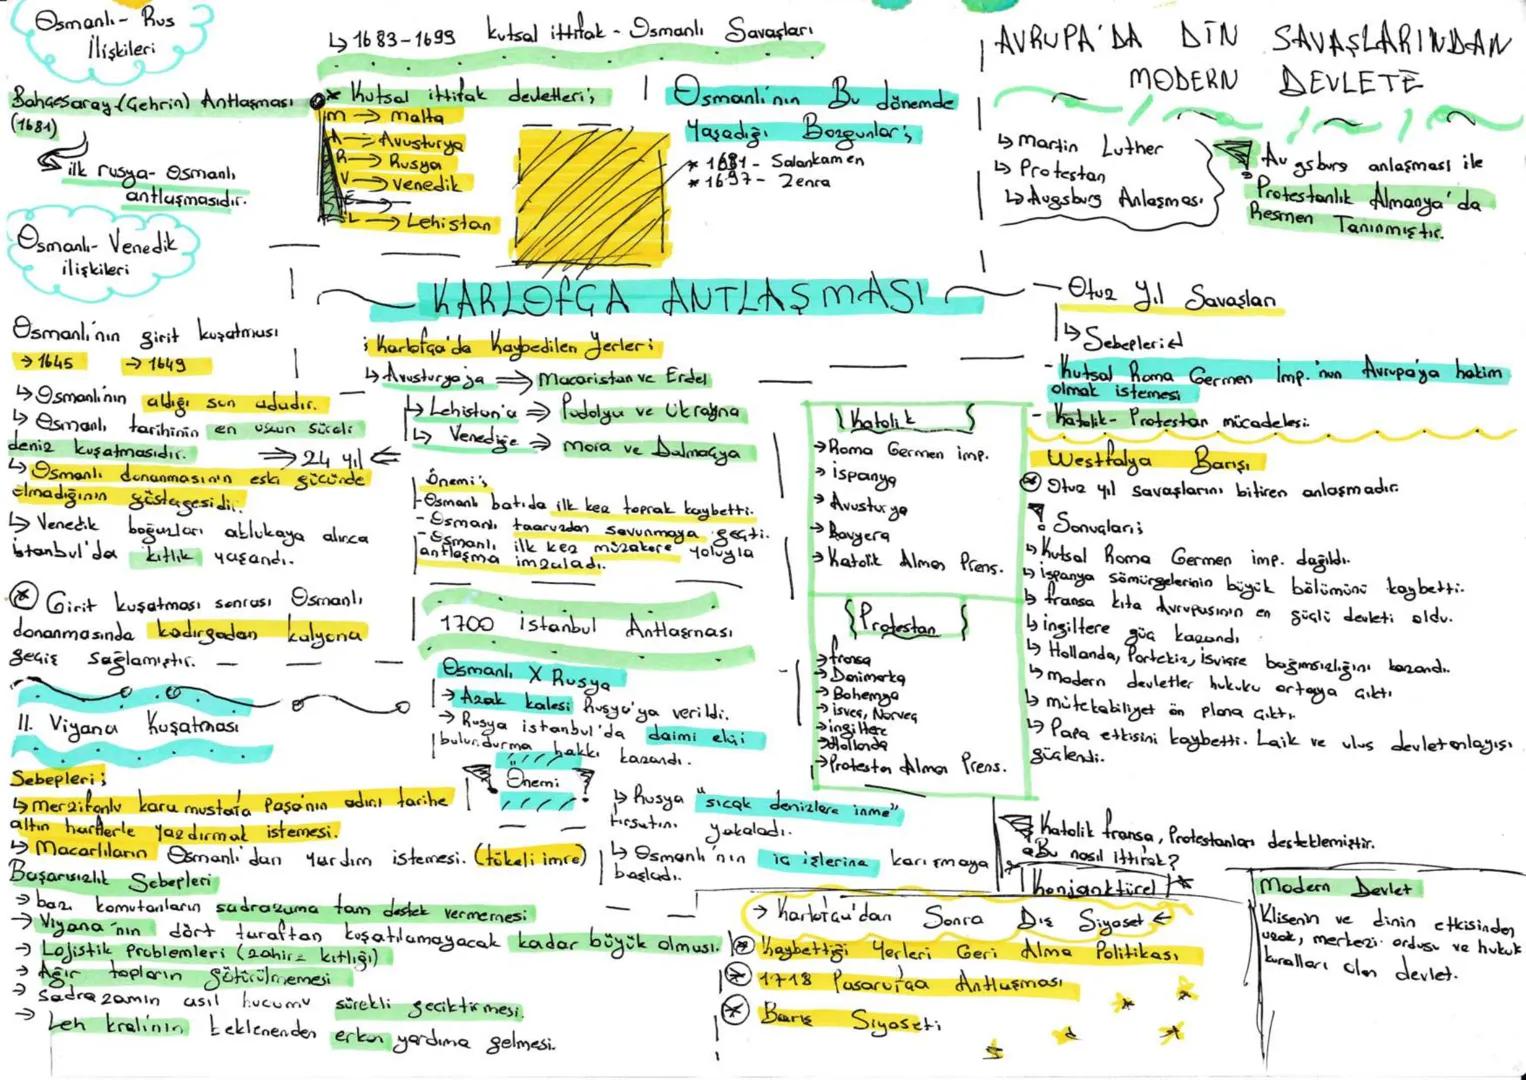 Osmanlı - Rus
İlişkileri
Bahçesaray (Çehrin) Antlaşması
(1681)
ilk rusya - Osmanlı
antlaşmasıdır.
Osmanlı - Venedik
ilişkileri
Osmanlı'nın girit kuşatması
→ 1645 → 1649
↳ Osmanlı'nın aldığı son adadır.
↳ Osmanlı tarihinin en uzun süreli
deniz kuşatmasıdır. ⇒ 24 yıl ⇐
↳ Osmanlı donanmasının eski gücünde
olmadığının göstergesidir.
↳ Venedik boğazları ablukaya alınca
istanbul'da kıtlık yaşandı.
Girit kuşatması sonrası Osmanlı
donanmasında kadırgadan kalyona
geçiş sağlamıştır.
II. Viyana Kuşatması
Sebepleri;
↳ merzifonlu kara mustafa Paşa'nın adını tarihe
altın harflerle yazdırmak istemesi.
↳ Macarlıların Osmanlı'dan yardım istemesi. (tökeli imre)
Başarısızlık Sebepleri
→ bazı komutanların sadrazama tam destek vermemesi
→ Viyana'nın dört taraftan kuşatılamayacak kadar büyük olması.
→ Lojistik Problemleri (zahire kıtlığı)
→ Ağır topların götürülmemesi
→ Sadrazamın asıl hucumu sürekli geciktirmesi.
→ Leh kralı'nın beklenenden erken yardıma gelmesi.
↳ 1683-1699 kutsal ittifak - Osmanlı Savaşları
* Kutsal ittifak devletleri;
m → malta
A → Avusturya
R → Rusya
V → Venedik
E →
L → Lehistan
Osmanlı'nın Bu dönemde
Yaşadığı Bozgunlar;
* 1691 - Salankamen
* 1697 - Zenta
KARLOFÇA ANTLAŞMASI
Karlofça'da Kaybedilen Yerler;
↳ Avusturya'ya ⇒ Macaristan ve Erdel
↳ Lehistan'a ⇒ Podolya ve Ukrayna
↳ Venediğe ⇒ mora ve Dalmaçya
Önemi;
- Osmanlı batıda ilk kez toprak kaybetti.
- Osmanlı taaruzdan savunmaya geçti.
- Osmanlı ilk kez müzakere yoluyla
antlaşma imzaladı.
1700 istanbul Antlaşması
Osmanlı X Rusya
→ Azak kalesi Rusya'ya verildi.
→ Rusya istanbul'da daimi elçi
bulundurma hakkı kazandı.
Önemi
↳ Rusya "sıcak denizlere inme"
fırsatını yakaladı.
↳ Osmanlı'nın iç işlerine karışmaya
başladı.
→ Karlofça'dan Sonra Dış Siyaset ←
Kaybettiği Yerleri Geri Alma Politikası
1718 Pasarofça Antlaşması
Barış Siyaseti
AVRUPA'DA DİN SAVAŞLARINDAN
MODERN DEVLETE
↳ martin Luther
↳ Protestan
↳ Augsburg Anlaşması
Augsburg anlaşması ile
Protestanlık Almanya'da
Resmen Tanınmıştır.
Otuz Yıl Savaşları
↳ Sebepleri
- Kutsal Roma Germen İmp.'nun Avrupa'ya hakim
olmak istemesi
- Katolik - Protestan mücadelesi
Westfalya Barışı
Otuz yıl savaşlarını bitiren anlaşmadır.
Sonuçları;
↳ Kutsal Roma Germen imp. dağıldı.
↳ ispanya sömürgelerinin büyük bölümünü kaybetti.
↳ fransa kıta Avrupasının en güçlü devleti oldu.
↳ ingiltere güç kazandı
↳ Hollanda, Portekiz, isviçre bağımsızlığını kazandı.
↳ modern devletler hukuku ortaya çıktı
↳ mütekabiliyet ön plana çıktı
↳ Papa etkisini kaybetti. Laik ve ulus devlet anlayışı
güçlendi.
Katolik
→ Roma Germen imp.
→ ispanya
→ Avusturya
→ Bavyera
→ Katolik Alman Prens.
Protestan
→ fransa
→ Danimarka
→ Bohemya
→ isveç, Norveç
→ ingiltere
→ Hollanda
→ Protestan Alman Prens.
Katolik fransa, Protestanları desteklemiştir.
Bu nasıl ittifak?
konjonktürel
Modern Devlet
Klisenin ve dinin etkisinden
uzak, merkezi ordusu ve hukuk
kuralları olan devlet.